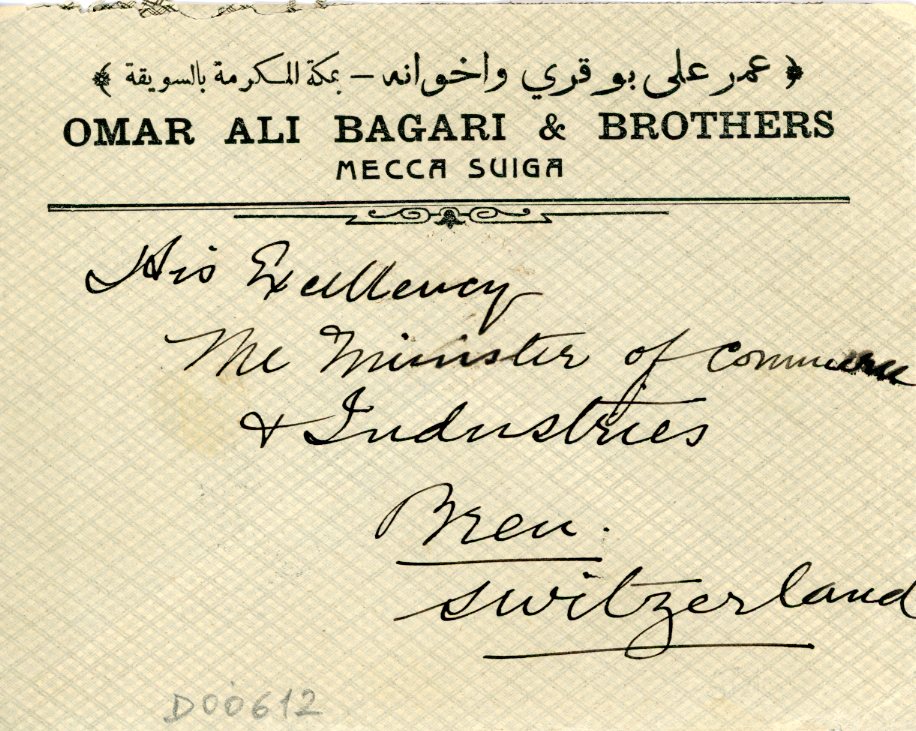 ﴿ عمر على بوقري واخوانه – بمكة المكرمة بالسويقة ﴾
OMAR ALI BAGARI & BROTHERS
MECCA SUIGA
His Excellency
The Minister of Commerce
& Industries
Bren.
Switzerland
D00612